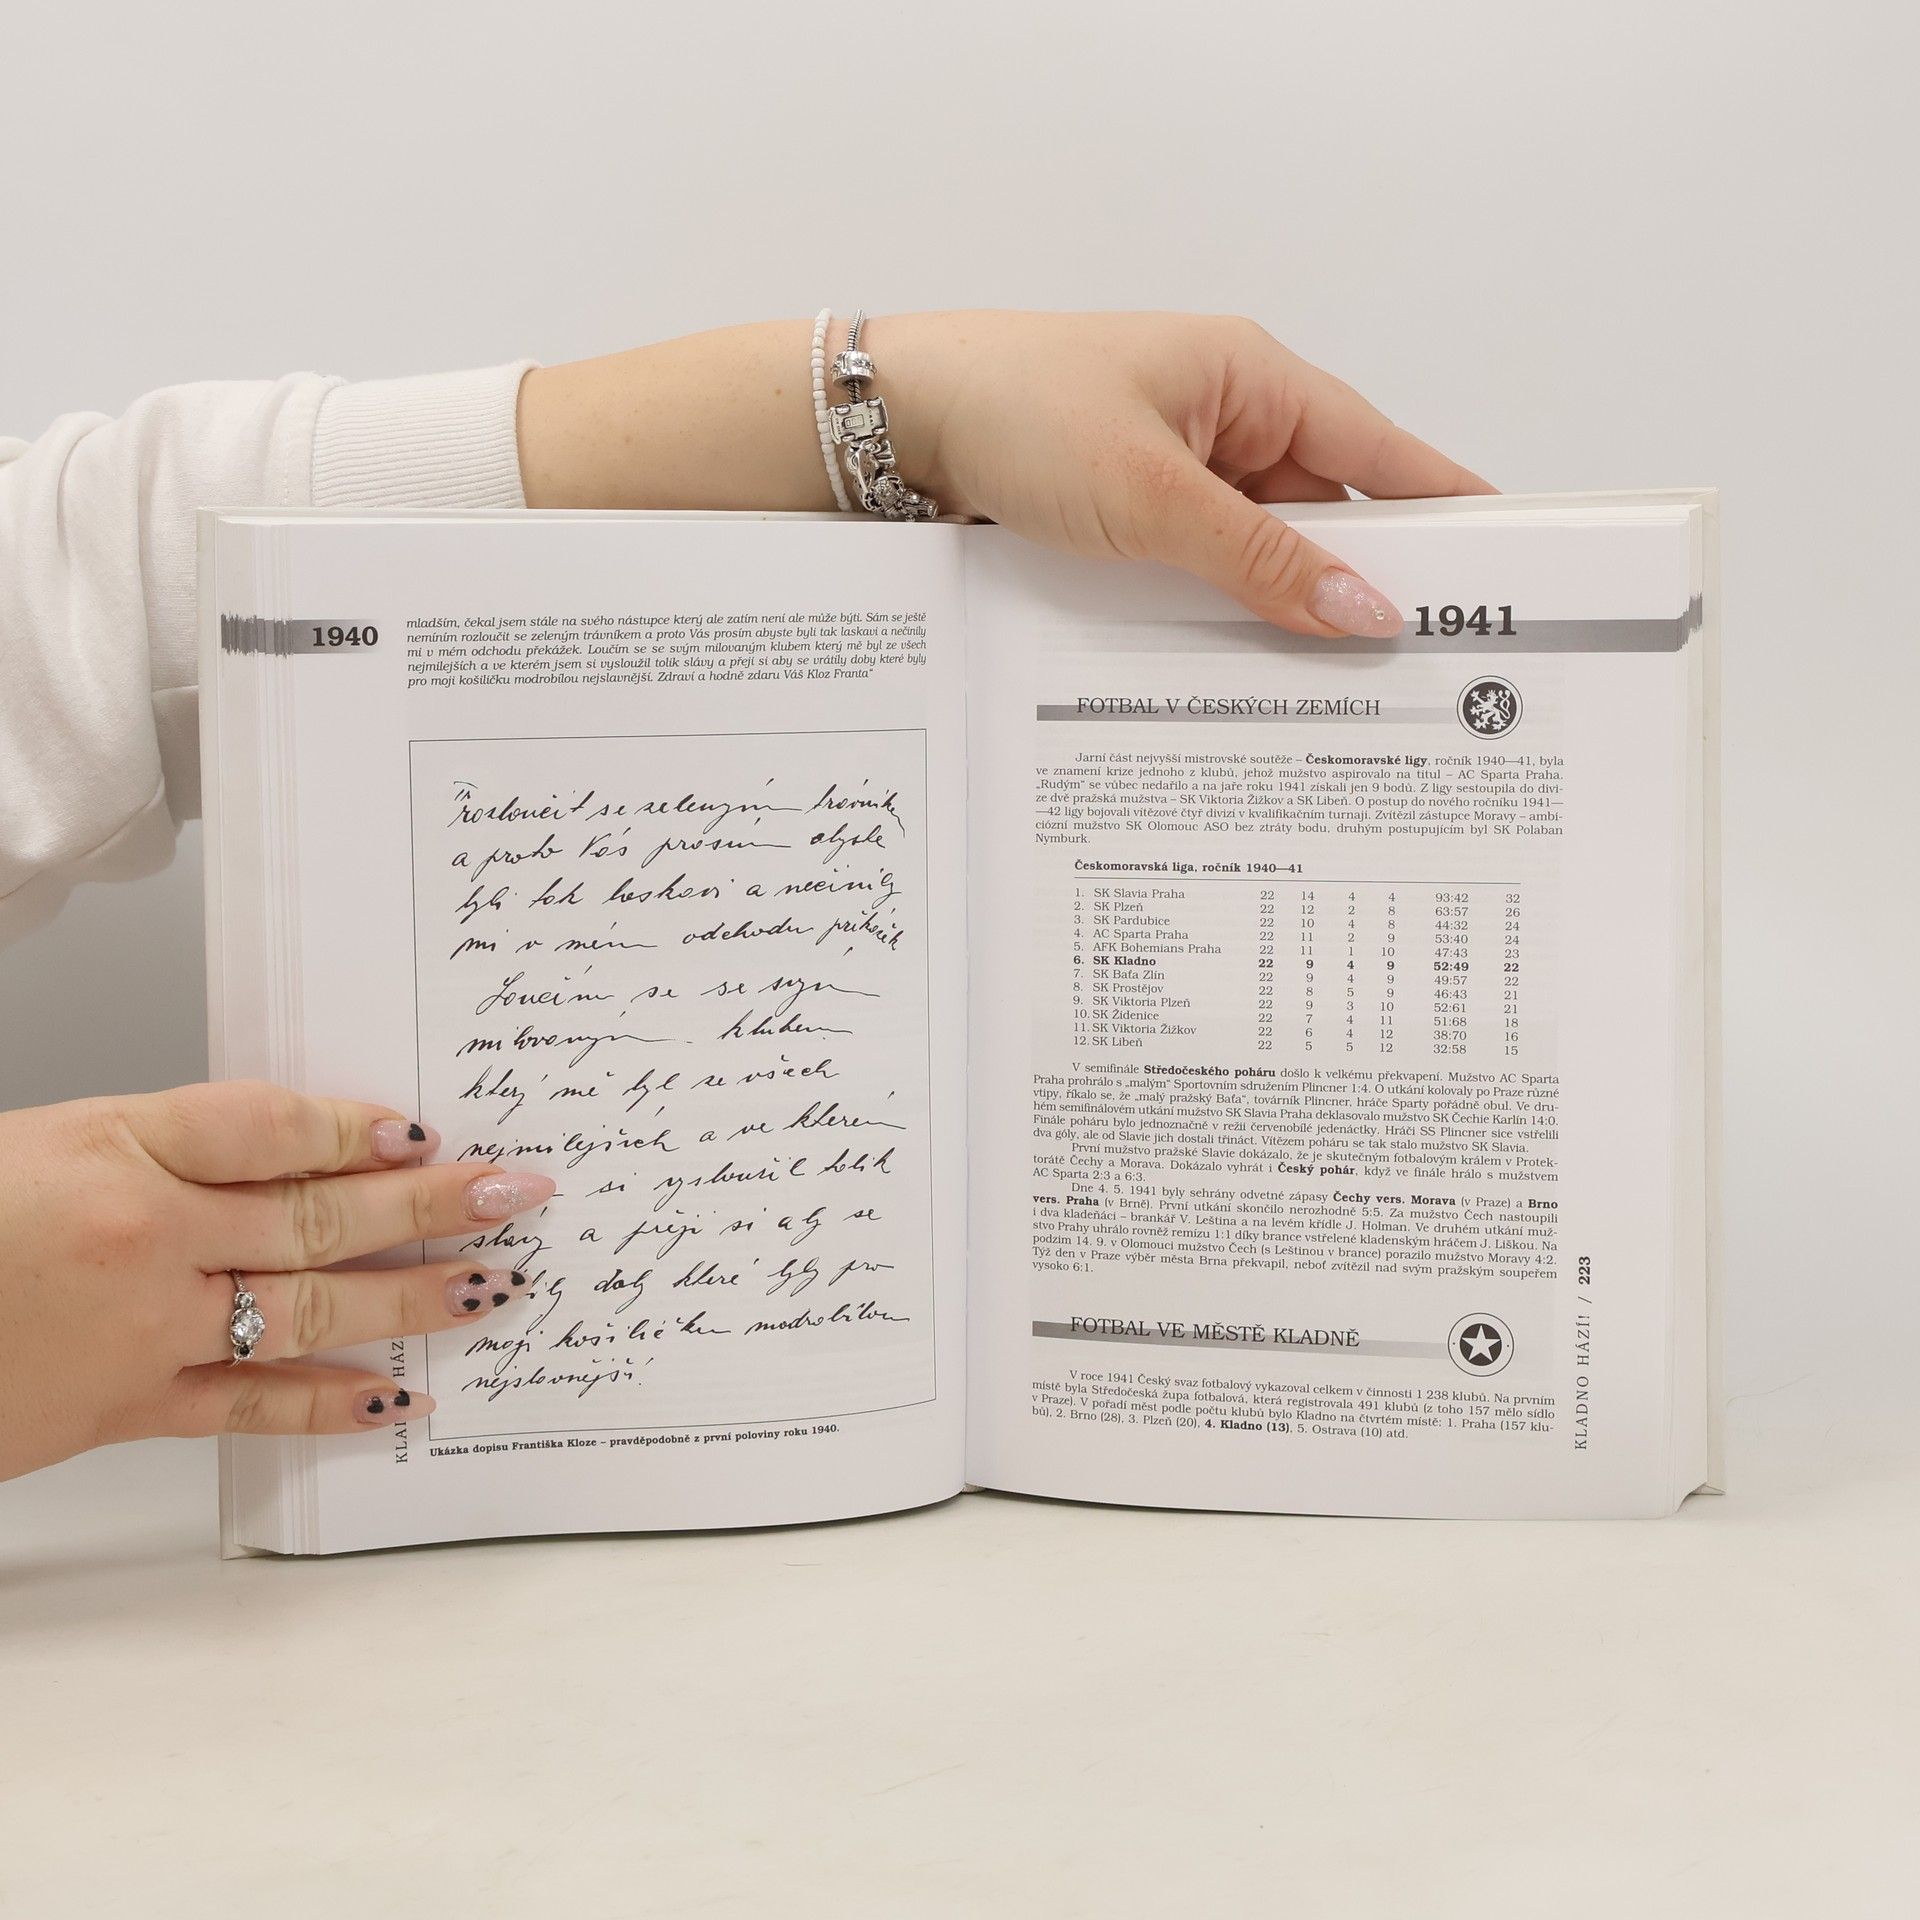 1940
mladším, čekal jsem stále na svého nástupce který ale zatím není ale může býti. Sám se ještě
nemíním rozloučit se zeleným trávníkem a proto Vás prosím abyste byli tak laskavi a nečinily
mi v mém odchodu překážek. Loučím se se svým milovaným klubem který mě byl ze všech
nejmilejších a ve kterém jsem si vysloužil tolik slávy a přeji si aby se vrátily doby které byly
pro moji košiličku modrobílou nejslavnější. Zdraví a hodně zdaru Váš Kloz Franta“
rozloučit se zeleným trávníkem
a proto Vás prosím abyste
byli tak laskavi a nečinily
mi v mém odchodu překážek
Loučím se se svým
milovaným klubem
který mě byl ze všech
nejmilejších a ve kterém
si vysloužil tolik
slávy a přeji si aby se
doby které byly pro
moji košiličku modrobílou
nejslavnější.
Ukázka dopisu Františka Kloze – pravděpodobně z první poloviny roku 1940.
1941
FOTBAL V ČESKÝCH ZEMÍCH
Jarní část nejvyšší mistrovské soutěže – Českomoravské ligy, ročník 1940—41, byla
ve znamení krize jednoho z klubů, jehož mužstvo aspirovalo na titul – AC Sparta Praha.
„Rudým“ se vůbec nedařilo a na jaře roku 1941 získali jen 9 bodů. Z ligy sestoupila do divi-
ze dvě pražská mužstva – SK Viktoria Žižkov a SK Libeň. O postup do nového ročníku 1941—
—42 ligy bojovali vítězové čtyř divizí v kvalifikačním turnaji. Zvítězil zástupce Moravy – ambi-
ciózní mužstvo SK Olomouc ASO bez ztráty bodu, druhým postupujícím byl SK Polaban
Nymburk.
Českomoravská liga, ročník 1940—41
1. SK Slavia Praha 22 14 4 4 93:42 32
2. SK Plzeň 22 12 2 8 63:57 26
3. SK Pardubice 22 10 4 8 44:32 24
4. AC Sparta Praha 22 11 2 9 53:40 24
5. AFK Bohemians Praha 22 11 1 10 47:43 23
6. SK Kladno 22 9 4 9 52:49 22
7. SK Baťa Zlín 22 9 4 9 49:57 22
8. SK Prostějov 22 8 5 9 46:43 21
9. SK Viktoria Plzeň 22 9 3 10 52:61 21
10. SK Židenice 22 7 4 11 51:68 18
11. SK Viktoria Žižkov 22 6 4 12 38:70 16
12. SK Libeň 22 5 5 12 32:58 15
V semifinále Středočeského poháru došlo k velkému překvapení. Mužstvo AC Sparta
Praha prohrálo s „malým“ Sportovním sdružením Plincner 1:4. O utkání kolovaly po Praze různé
vtipy, říkalo se, že „malý pražský Baťa“, továrník Plincner, hráče Sparty pořádně obul. Ve dru-
hém semifinálovém utkání mužstvo SK Slavia Praha deklasovalo mužstvo SK Čechie Karlín 14:0.
Finále poháru bylo jednoznačně v režii červenobílé jedenáctky. Hráči SS Plincner sice vstřelili
dva góly, ale od Slavie jich dostali třináct. Vítězem poháru se tak stalo mužstvo SK Slavia.
První mužstvo pražské Slavie dokázalo, že je skutečným fotbalovým králem v Protek-
torátě Čechy a Morava. Dokázalo vyhrát i Český pohár, když ve finále hrálo s mužstvem
AC Sparta 2:3 a 6:3.
Dne 4. 5. 1941 byly sehrány odvetné zápasy Čechy vers. Morava (v Praze) a Brno
vers. Praha (v Brně). První utkání skončilo nerozhodně 5:5. Za mužstvo Čech nastoupili
i dva kladeňáci – brankář V. Leština a na levém křídle J. Holman. Ve druhém utkání muž-
stvo Prahy uhrálo rovněž remízu 1:1 díky brance vstřelené kladenským hráčem J. Liškou. Na
podzim 14. 9. v Olomouci mužstvo Čech (s Leštinou v brance) porazilo mužstvo Moravy 4:2.
Týž den v Praze výběr města Brna překvapil, neboť zvítězil nad svým pražským soupeřem
vysoko 6:1.
FOTBAL VE MĚSTĚ KLADNĚ
V roce 1941 Český svaz fotbalový vykazoval celkem v činnosti 1 238 klubů. Na prvním
místě byla Středočeská župa fotbalová, která registrovala 491 klubů (z toho 157 mělo sídlo
v Praze). V pořadí měst podle počtu klubů bylo Kladno na čtvrtém místě: 1. Praha (157 klu-
bů), 2. Brno (28), 3. Plzeň (20), 4. Kladno (13), 5. Ostrava (10) atd.
KLADNO HÁZÍ! / 223